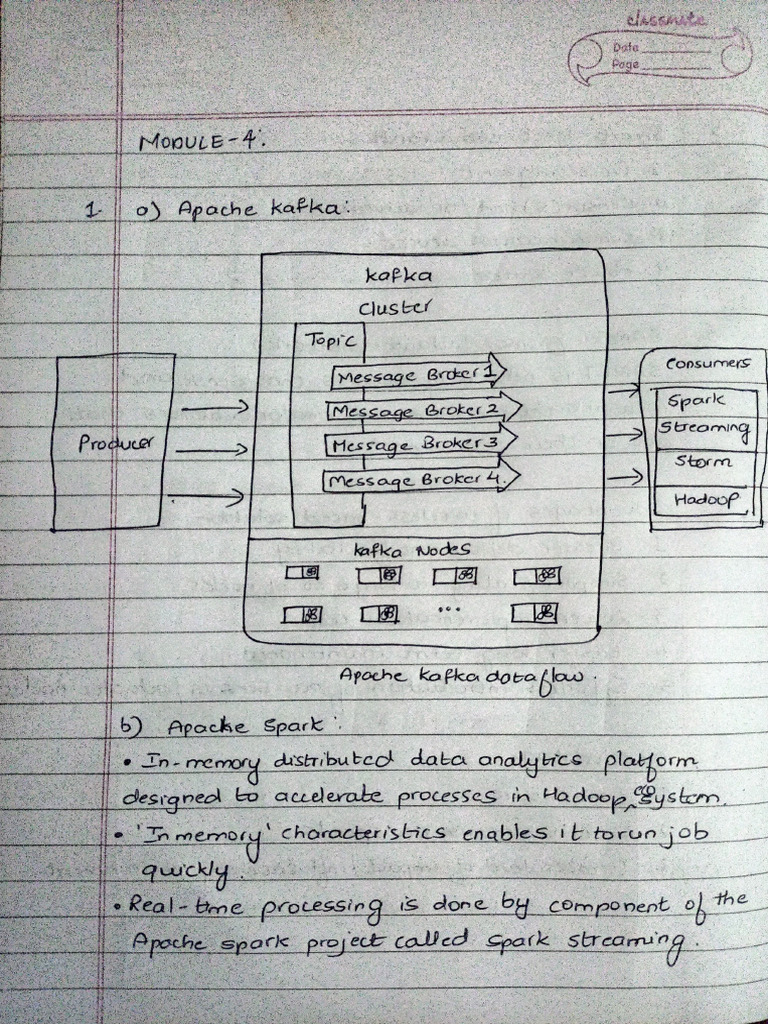 classmate
Date
Page
MODULE-4:
1. a) Apache kafka:
kafka
cluster
Topic
Message Broker 1
Message Broker 2
Message Broker 3
Message Broker 4.
Producer
Consumers
Spark
Streaming
Storm
Hadoop
kafka Nodes
...
Apache kafka dataflow.
b) Apache Spark:
• In-memory distributed data analytics platform
designed to accelerate processes in Hadoop ecosystem.
• 'In memory' characteristics enables it to run job
quickly.
• Real-time processing is done by component of the
Apache spark project called spark streaming.